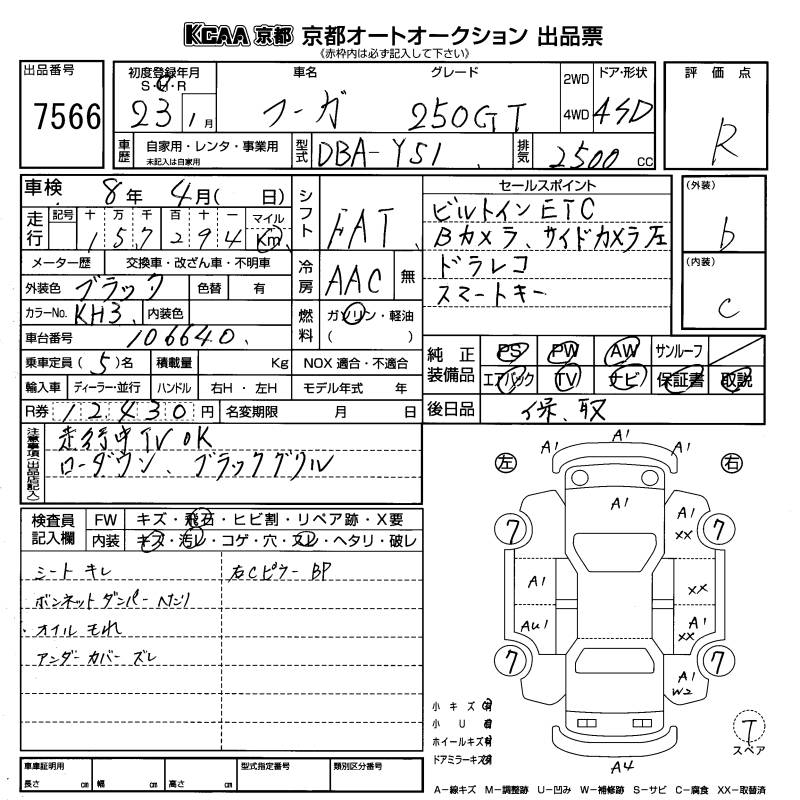 KCAA 京都 京都オートオークション 出品票
《赤枠内は必ず記入して下さい》
出品番号
7566
初度登録年月
S・H・R
23 / 1 月
車名
フーガ
グレード
250GT
2WD
4WD
ドア・形状
4SD
評価点
R
車歴
自家用・レンタ・事業用
未記入は自家用
型式
DBA-Y51
排気
2500 cc
車検 8年 4月( 日)
走行 記号 十 万 千 百 十 一 マイル
1 5 7 2 9 4 Km
シフト
FAT
メーター歴 交換車・改ざん車・不明車
冷房
AAC
無
外装色 ブラック 色替 有
カラーNo. KH3 内装色
燃料
ガソリン・軽油
( )
車台番号 106640
セールスポイント
ビルトインETC
Bカメラ、サイドカメラ左
ドラレコ
スマートキー
(外装)
b
(内装)
c
乗車定員 (5)名 積載量 Kg NOX 適合・不適合
輸入車 ディーラー・並行 ハンドル 右H・左H モデル年式 年
R券 12,430 円 名変期限 月 日
純正装備品
PS PW AW サンルーフ
エアバック TV ナビ 保証書 取説
後日品 保、取
注意事項(出品店記入)
走行中TV OK
ローダウン、ブラックグリル
検査員記入欄
FW キズ・飛石・ヒビ割・リペア跡・X要
内装 キズ・汚レ・コゲ・穴・スレ・ヘタリ・破レ
シート キレ
右Cピラー BP
ボンネット ダンパー ヘタリ
・オイル もれ
アンダーカバー ズレ
左
右
A1 A1 A1
A1
A1
XX
7 7
A1
XX
AU1
A1
XX
7 7
A1
W2
A4
小キズ 有
小U 有
ホイールキズ 有
ドアミラーキズ 有
T
スペア
車庫証明用
長さ cm 幅 cm 高さ cm
型式指定番号
類別区分番号
A-線キズ M-調整跡 U-凹み W-補修跡 S-サビ C-腐食 XX-取替済